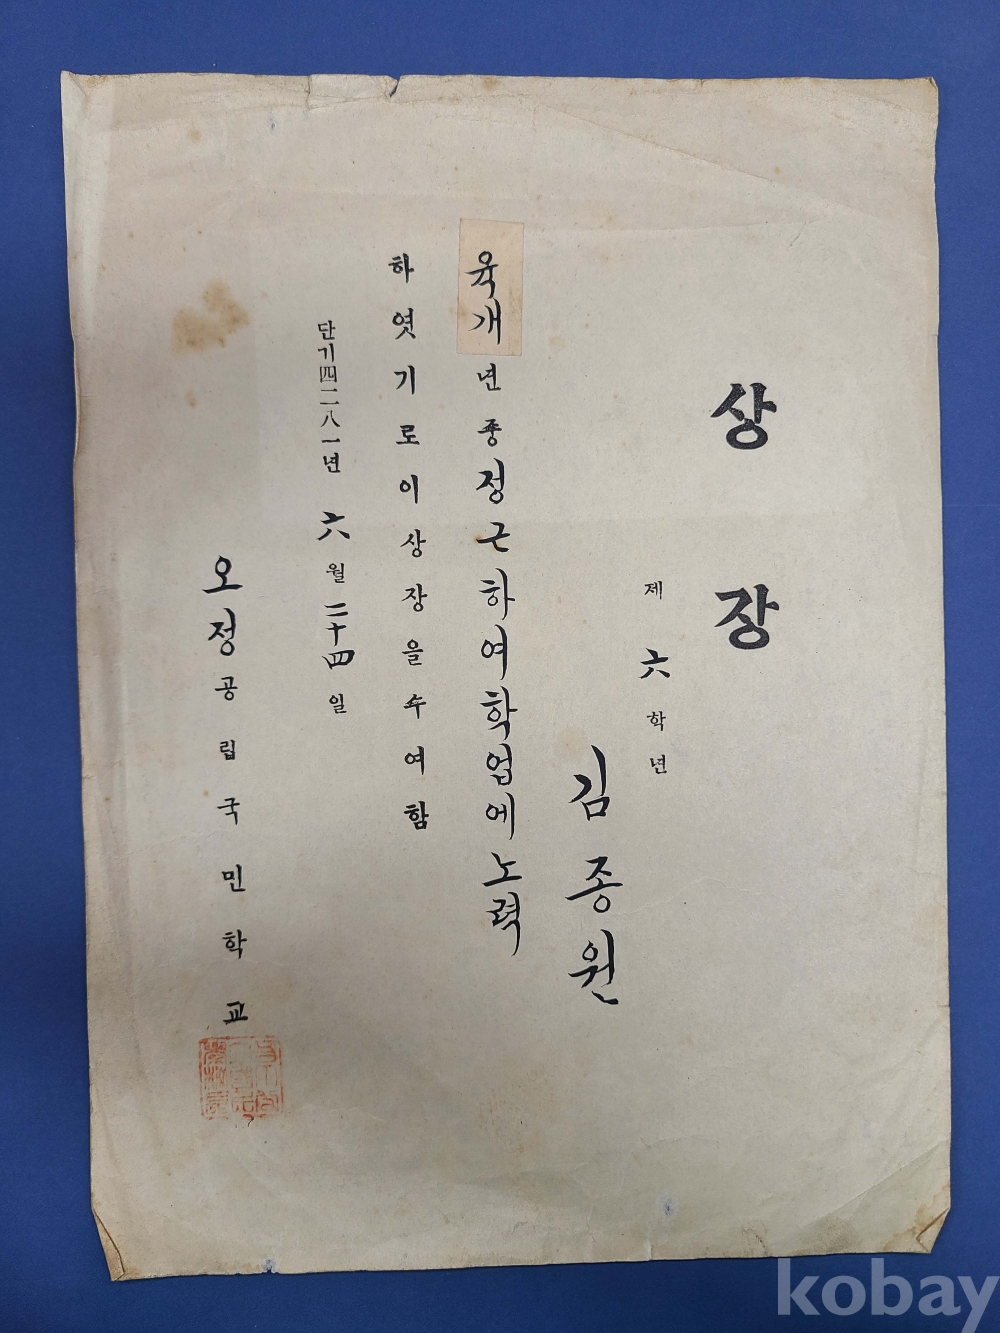 상장
제六학년
김종원
육개년중정근하여학업에노력
하엿기로이상장을수여함
단기四二八一년六월二十四일
오정공립국민학교
kobay